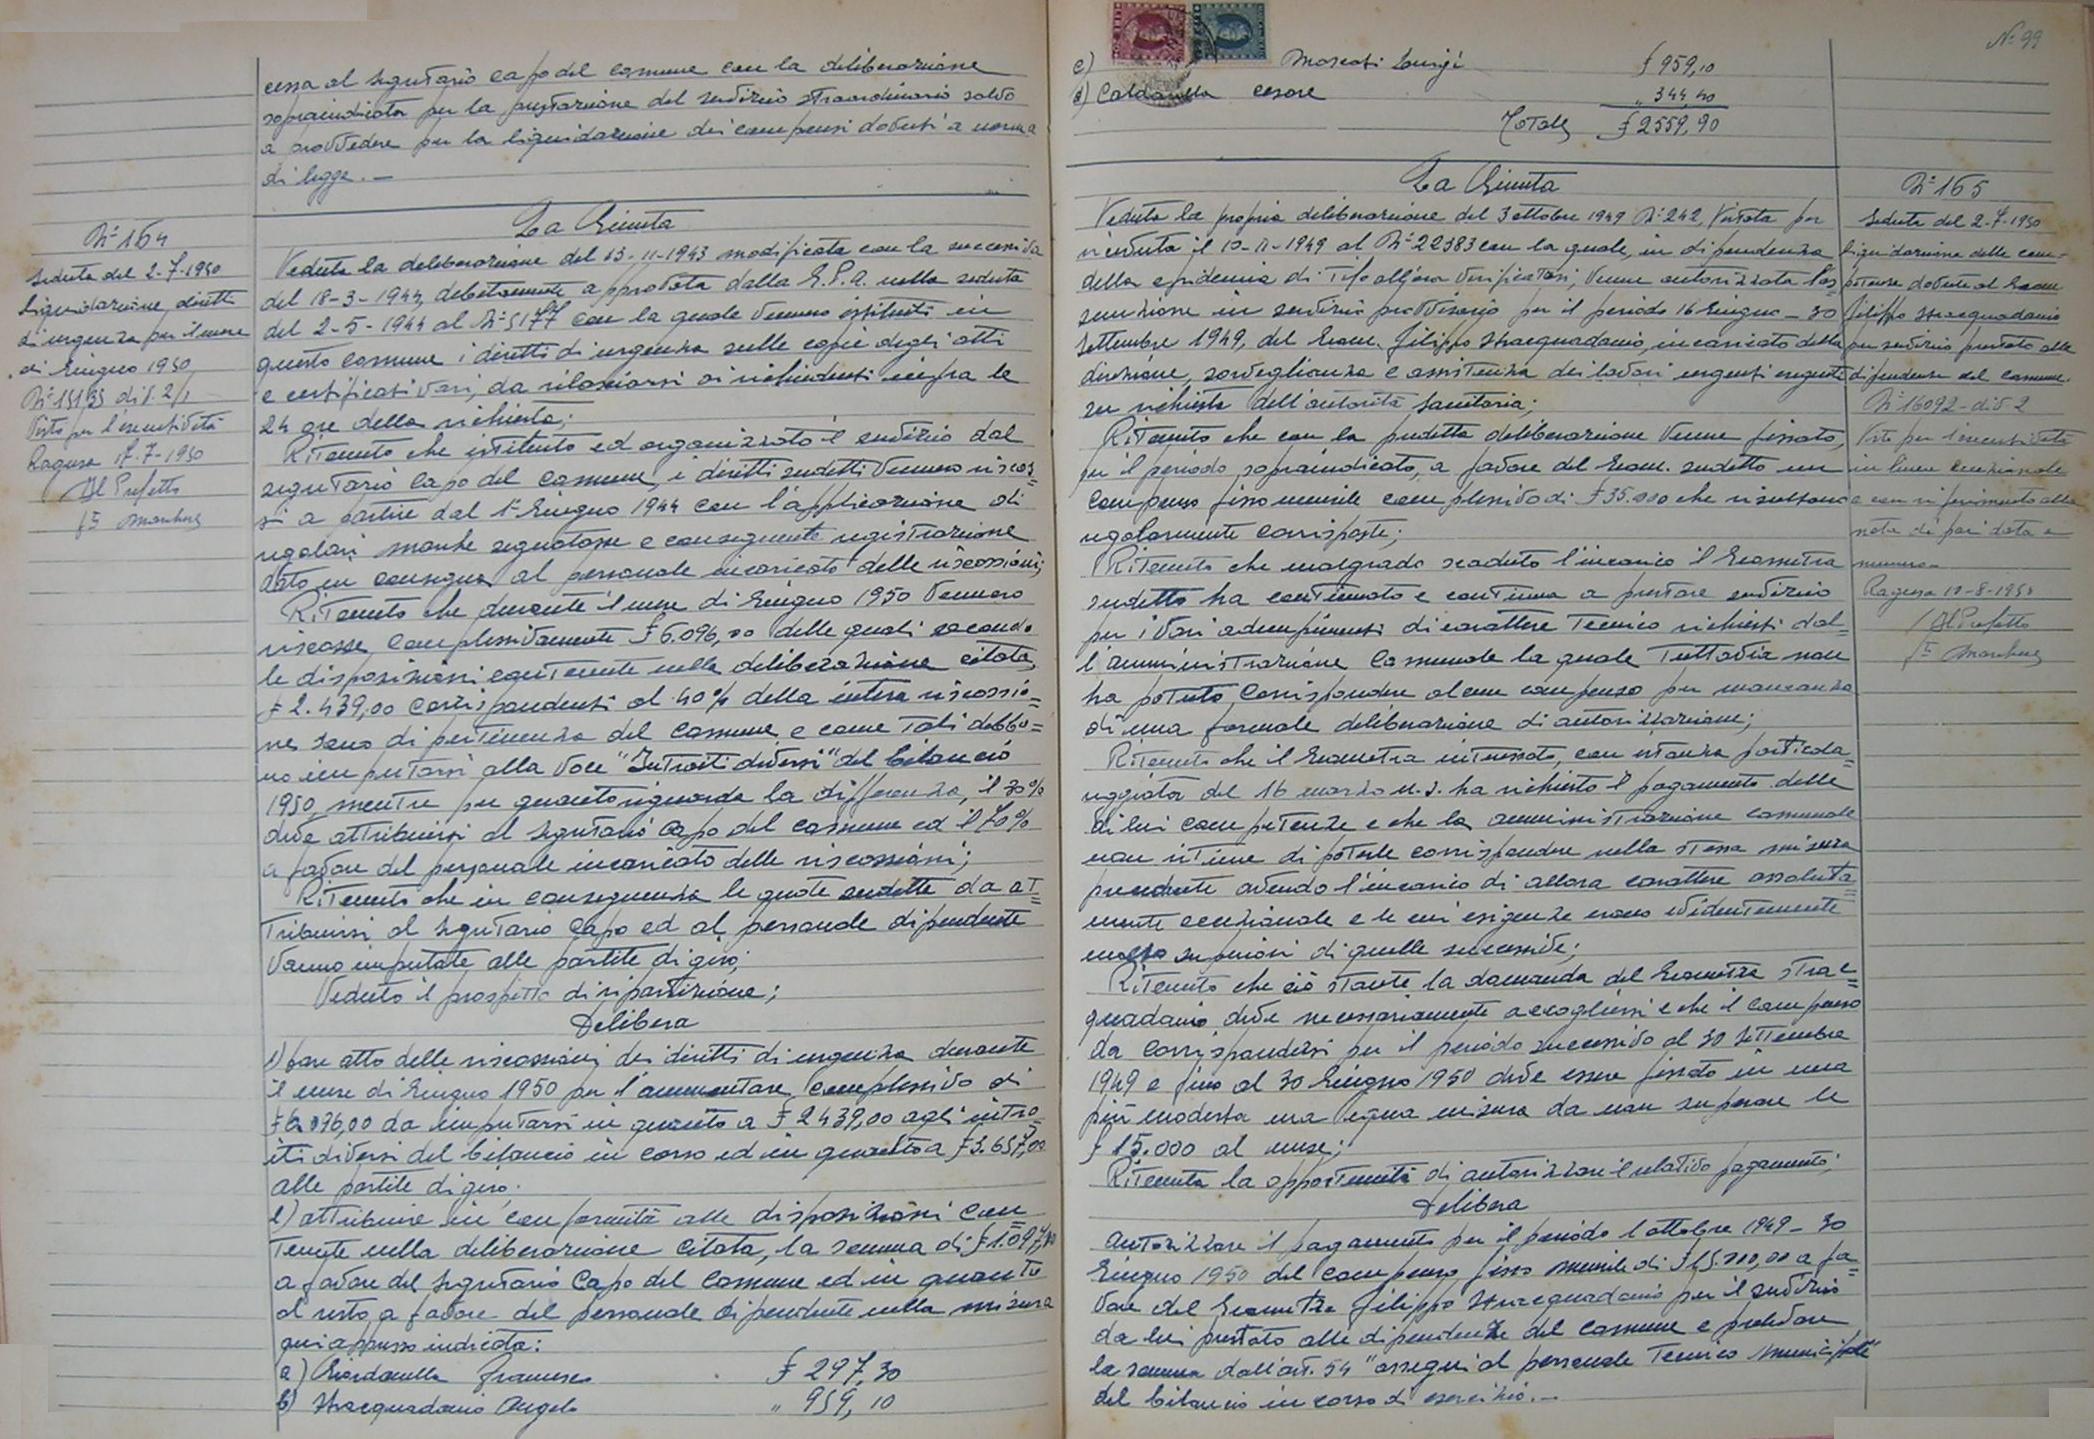 cessa al segretario capo del comune con la deliberazione
sopraindicata per la prestazione del servizio straordinario salvo
a provvedere per la liquidazione dei compensi dovuti a norma
di legge. —
N° 164
Seduta del 2-7-1950
Liquidazione diritti
di urgenza per il mese
di Giugno 1950
div. 2/1
Visto per l'esecutività
Ragusa 17-7-1950
Il Prefetto
La Giunta
Veduta la deliberazione del 13-11-1943 modificata con la successiva
del 18-3-1944, debitamente approvata dalla G.P.A. nella seduta
del 2-5-1944 al N° 5177 con la quale vennero istituiti in
questo comune i diritti di urgenza sulle copie degli atti
e certificati vari, da rilasciarsi ai richiedenti infra le
24 ore della richiesta;
Ritenuto che istituito ed organizzato il servizio dal
segretario Capo del Comune, i diritti sudetti vennero riscos=
si a partire dal 1° Giugno 1944 con l'applicazione di
regolari marche segnatasse e conseguente registrazione
dato in consegna al personale incaricato delle riscossioni;
Ritenuto che durante il mese di Giugno 1950 vennero
riscosse complessivamente £ 6.096,00 delle quali secondo
le disposizioni contenute nella deliberazione citata,
£ 2.439,00 corrispondenti al 40% della intera riscossio=
ne sono di pertinenza del comune e come tali debbo=
no imputarsi alla voce "Introiti diversi" del bilancio
1950, mentre per quanto riguarda la differenza, il 30%
deve attribuirsi al segretario Capo del comune ed il 70%
a favore del personale incaricato delle riscossioni;
Ritenuto che in conseguenza le quote sudette da at=
tribuirsi al segretario Capo ed al personale dipendente
vanno imputate alle partite di giro;
Veduto il prospetto di ripartizione;
Delibera
1) fare atto delle riscossioni dei diritti di urgenza durante
il mese di Giugno 1950 per l'ammontare complessivo di
£ 6.096,00 da imputarsi in quanto a £ 2439,00 agli intro=
iti diversi del bilancio in corso ed in quanto a £ 3.657,00
alle partite di giro;
2) attribuire in conformità alle disposizioni con=
tenute nella deliberazione citata, la somma di £ 1.097,10
a favore del segretario Capo del comune ed in quanto
al resto a favore del personale dipendente nella misura
qui appresso indicata:
a) Giordanella Francesco £ 297,30
b) Stracquadanio Angelo " 959,10
N° 99
c) Moscati Luigi £ 959,10
d) Caldarella Cesare " 344,40
Totale £ 2559,90
La Giunta
Veduta la propria deliberazione del 3 ottobre 1949 N° 242, vistata per
ricevuta il 10-11-1949 al N° 22383 con la quale, in dipendenza
della epidemia di tifo allora verificatasi, venne autorizzata l'as=
sunzione in servizio provvisorio per il periodo 16 Giugno - 30
Settembre 1949, del Geom. Filippo Stracquadanio, incaricato della
direzione, sorveglianza e assistenza dei lavori urgenti eseguiti
su richiesta dell'autorità Sanitaria;
Ritenuto che con la predetta deliberazione venne fissato,
per il periodo sopraindicato, a favore del Geom. sudetto un
compenso fisso mensile complessivo di £ 35.000 che risultano
regolarmente corrisposte;
Ritenuto che malgrado scaduto l'incarico il Geometra
sudetto ha continuato e continua a prestare servizio
per i vari adempimenti di carattere tecnico richiesti dal=
l'amministrazione Comunale la quale tuttavia non
ha potuto corrispondere alcun compenso per mancanza
di una formale deliberazione di autorizzazione;
Ritenuto che il Geometra interessato, con istanza particola=
reggiata del 16 marzo u.s. ha richiesto il pagamento delle
di lui competenze e che la amministrazione comunale
non ritiene di poterle corrispondere nella stessa misura
precedente avendo l'incarico di allora carattere assoluta=
mente eccezionale e le cui esigenze erano evidentemente
molto superiori di quelle successive;
Ritenuto che ciò stante la domanda del Geometra Strac=
quadanio deve necessariamente accogliersi e che il compenso
da corrispondersi per il periodo successivo al 30 Settembre
1949 e fino al 30 Giugno 1950 deve essere fissato in una
più modesta ma equa misura da non superare le
£ 15.000 al mese;
Ritenuta la opportunità di autorizzare il relativo pagamento;
Delibera
Autorizzare il pagamento per il periodo 1 ottobre 1949 - 30
Giugno 1950 del compenso fisso mensile di £ 15.000,00 a fa=
vore del Geometra Filippo Stracquadanio per il servizio
da lui prestato alle dipendenze del comune e prelevare
la somma dall'art. 54 "assegni al personale Tecnico Municipale"
del bilancio in corso di esercizio. —
N° 165
Seduta del 2-7-1950
Liquidazione delle com=
petenze dovute al Geom.
Filippo Stracquadanio
per servizio prestato alle
dipendenze del comune.
N° 16092 - div. 2
Visto per l'esecutività
in linea eccezionale
e con riferimento alla
nota di pari data e
numero.
Ragusa 10-8-1950
Il Prefetto